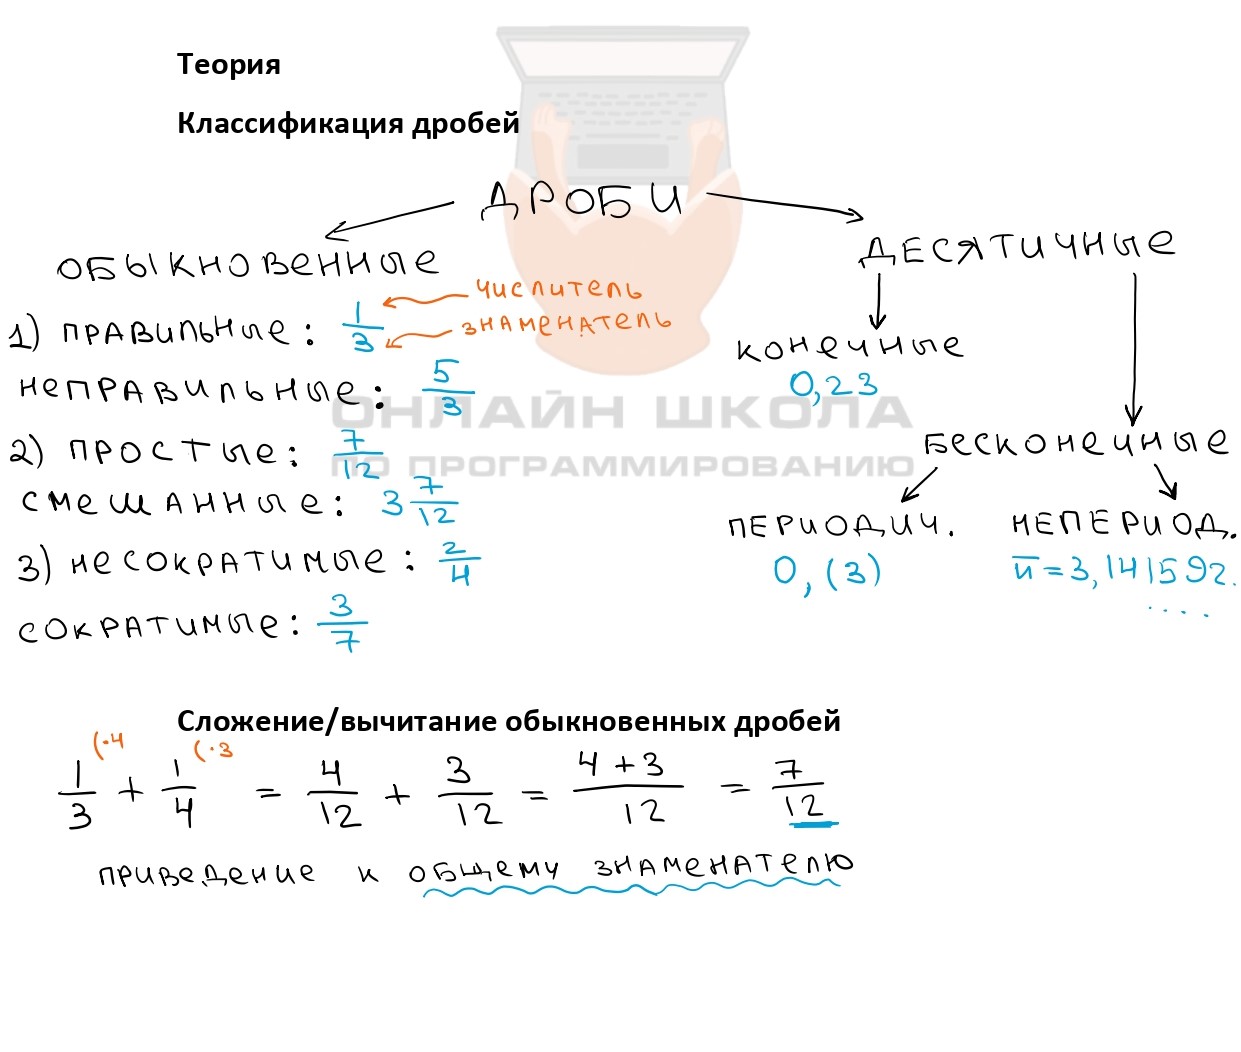 Теория
Классификация дробей
ДРОБИ
ОБЫКНОВЕННЫЕ
числитель
знаменатель
1) ПРАВИЛЬНЫЕ: 1/3
НЕПРАВИЛЬНЫЕ: 5/3
2) ПРОСТЫЕ: 7/12
СМЕШАННЫЕ: 3 7/12
3) НЕСОКРАТИМЫЕ: 2/4
СОКРАТИМЫЕ: 3/7
ДЕСЯТИЧНЫЕ
КОНЕЧНЫЕ
0,23
БЕСКОНЕЧНЫЕ
ПЕРИОДИЧ.
0,(3)
НЕПЕРИОД.
π = 3,141592.
....
ОНЛАЙН ШКОЛА
ПО ПРОГРАММИРОВАНИЮ
Сложение/вычитание обыкновенных дробей
(·4 (·3
1/3 + 1/4 = 4/12 + 3/12 = 4+3/12 = 7/12
приведение к общему знаменателю